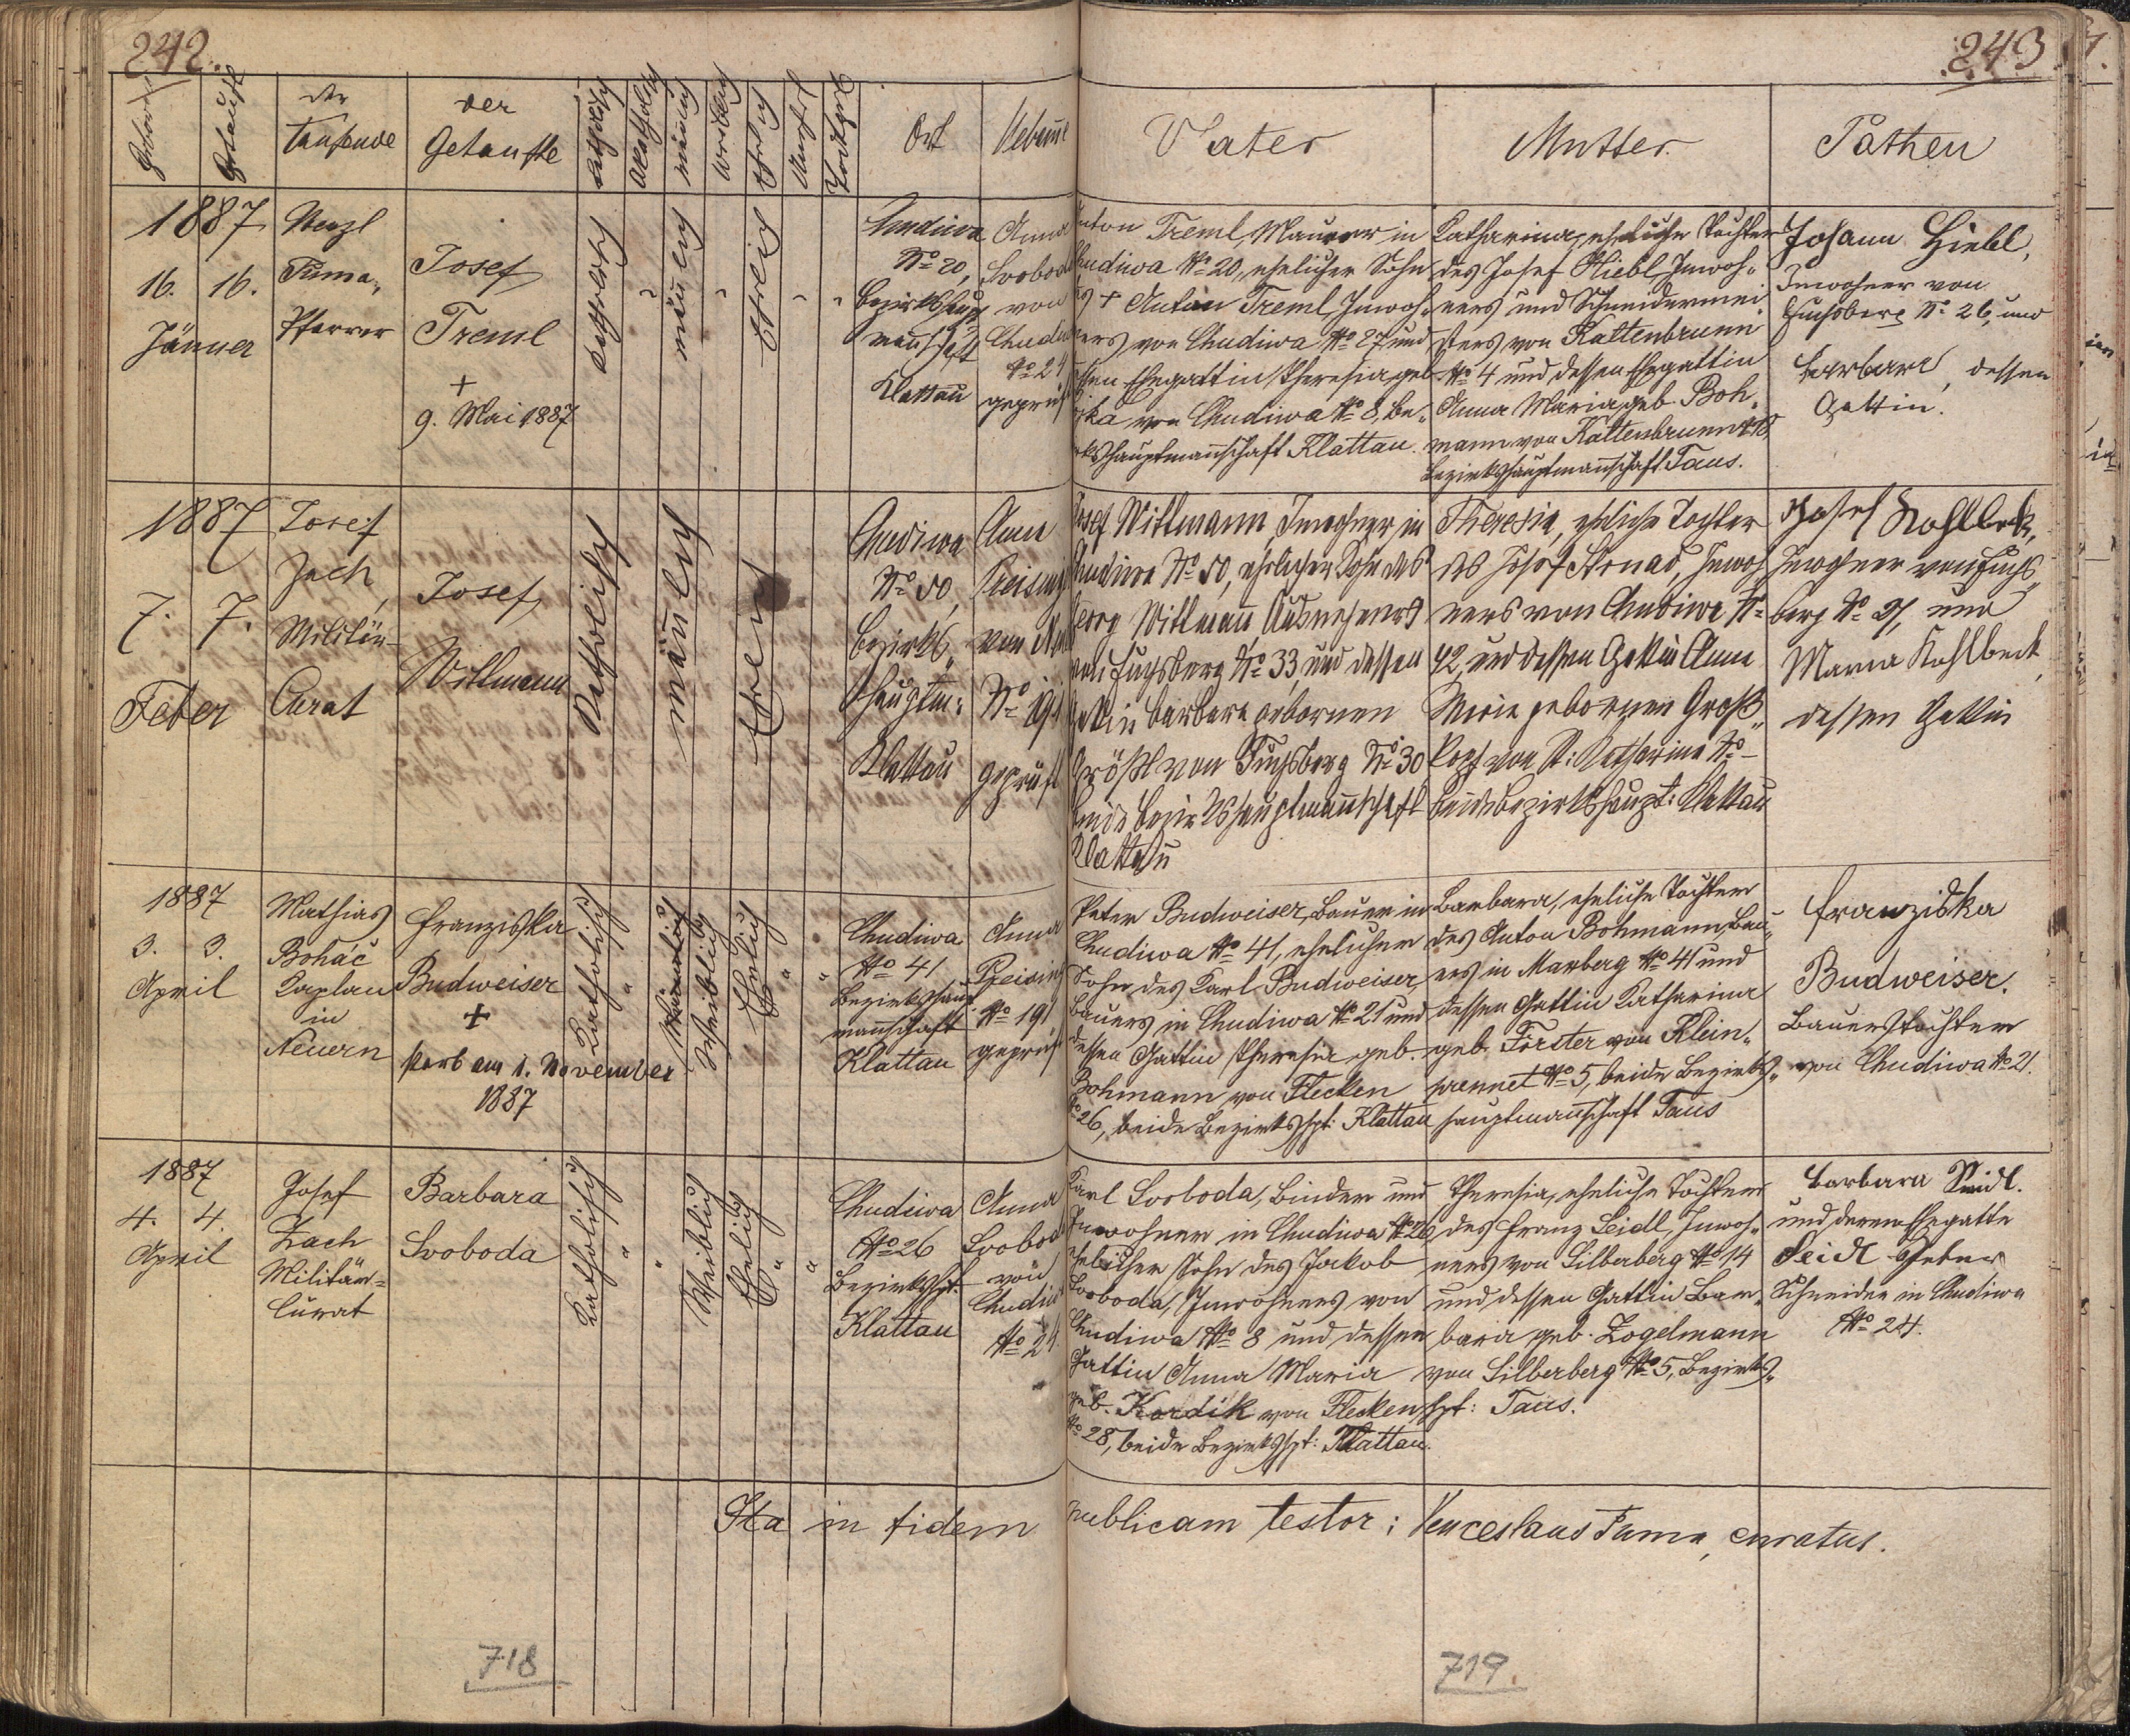 242.
243
Geboren
Getauft
der
Taufende
der
Getaufte
Katholisch
Akatholisch
männlich
weiblich
Ehelich
Unehel
Todtgeb
Ort
Hebamme
Vater
Mutter
Pathen
1887
16. 16.
Jänner
Wenzl
Tuma,
Pfarrer
Josef
Treml
+
9. Mai 1887
Katholisch
männlich
Ehelich
Chudiwa
No 20,
Bezirkshaupt
mannschaft
Klattau
Anna
Svoboda
von
Chudi
No 24
geprüft
Anton Treml, Maurer in
Chudiwa No 20, ehelicher Sohn
des + Anton Treml, Inwoh-
ners von Chudiwa No 27 und
dessen Ehegattin Theresia, geb.
von Chudiwa No 8, Be-
zirkshauptmannschaft Klattau.
Katharina, eheliche Tochter
des Josef Hiebl, Inwoh-
ners und Schneidermei
sters von Kaltenbrunn
No 4 und dessen Ehegattin
Anna Maria, geb. Boh-
mann von Kaltenbrunn No 18,
Bezirkshauptmannschaft Taus.
Johann Hiebl,
Inwohner von
Fuchsberg No 26, und
Barbara, dessen
Gattin.
1887
7. 7.
Feber
Josef
Zach,
Militär-
Curat
Josef
Willmann
Katholisch
männlich
Ehelich
Chudiwa
No 50,
Bezirks
hauptm:
Klattau
Anna
Preising
von
No 191
geprüft
Josef Willmann, Inwohner in
Chudiwa No 50, ehelicher Sohn des
Georg Willmann, Ausnehmers
von Fuchsberg No 33, und dessen
Gattin Barbara gebornen
Größl von Fuchsberg No 30
beide Bezirkshauptmannschaft
Klattau
Theresia, eheliche Tochter
des Josef Strnad, Inwoh
ners von Chudiwa No
42, und dessen Gattin Anna
Maria gebornen Groß-
kopf von St. Katharina No -
beide Bezirkshaupt: Klattau
Josef Kohlbek,
Inwohner von Fuchs-
berg No 21, und
Maria Kohlbeck,
dessen Gattin
1887
3. 3.
April
Mathias
Boháč
Kaplan
in
Neuern
Franziska
Budweiser
+
starb am 1. November
1887
Katholisch
"
Männlich
Weiblich
Ehelich
"
"
Chudiwa
No 41
Bezirkshaupt
mannschaft
Klattau
Anna
Preising
No 191
geprüft
Peter Budweiser, Bauer in
Chudiwa No 41, ehelicher
Sohn des Karl Budweiser,
Bauers in Chudiwa No 21 und
dessen Gattin Theresia geb.
Bohmann von Flecken
No 26, beide Bezirkshpt: Klattau
Barbara, eheliche Tochter
des Anton Bohmann, Bau-
ers in Maxberg No 41 und
dessen Gattin Katharina
geb. Förster von Klein-
prennet No 5, beide Bezirks-
hauptmannschaft Taus
Franziska
Budweiser.
Bauerstochter
von Chudiwa No 21.
1887
4. 4.
April
Josef
Zach
Militär=
Curat
Barbara
Svoboda
Katholisch
"
"
Weiblich
Ehelich
"
"
Chudiwa
No 26
Bezirkshpt.
Klattau
Anna
Svoboda
von
Chudiw
No 24.
Karl Svoboda, Binder und
Inwohner in Chudiwa No 26
ehelicher Sohn des Jakob
Svoboda, Inwohners von
Chudiwa No 8 und dessen
Gattin Anna Maria
geb. Kordik von Flecken
No 28, beide Bezirkshpt: Klattau.
Theresia, eheliche Tochter
des Franz Seidl, Inwoh-
ners von Silberberg No 14
und dessen Gattin Bar-
bara geb. Zogelmann
von Silberberg No 5, Bezirks-
hpt: Taus.
Barbara Seidl.
und deren Ehegatte
Seidl Peter
Schneider in Chudiwa
No 24.
Ita in fidem publicam testor: Venceslaus Tuma, curatus.
718
719.